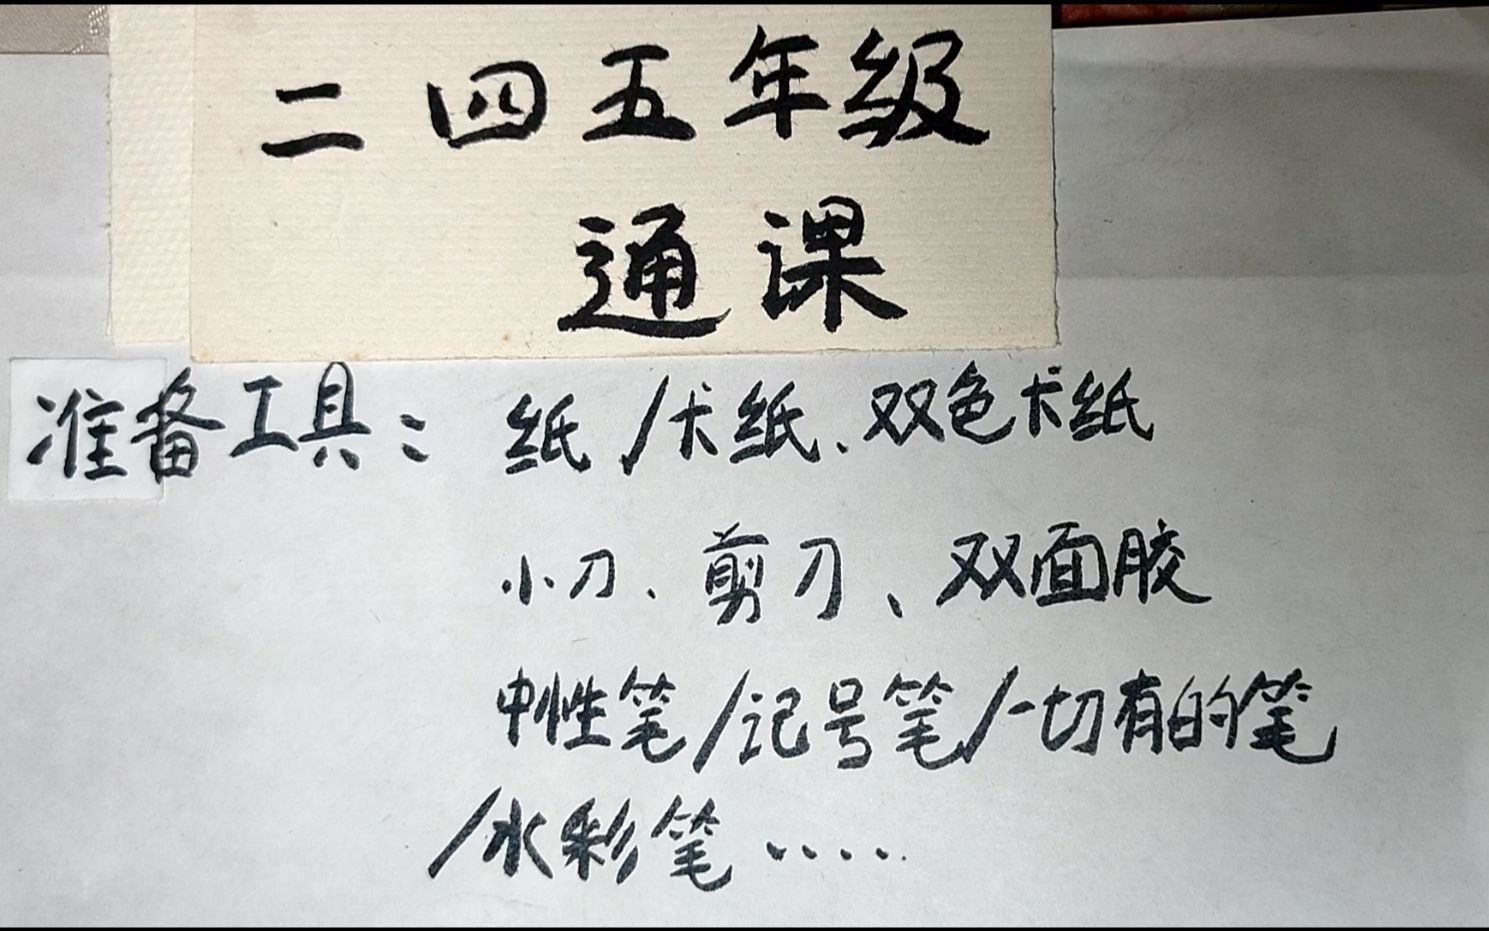 二四五年级
通课
准备工具：纸/卡纸、双色卡纸
小刀、剪刀、双面胶
中性笔/记号笔/一切有的笔
/水彩笔·····